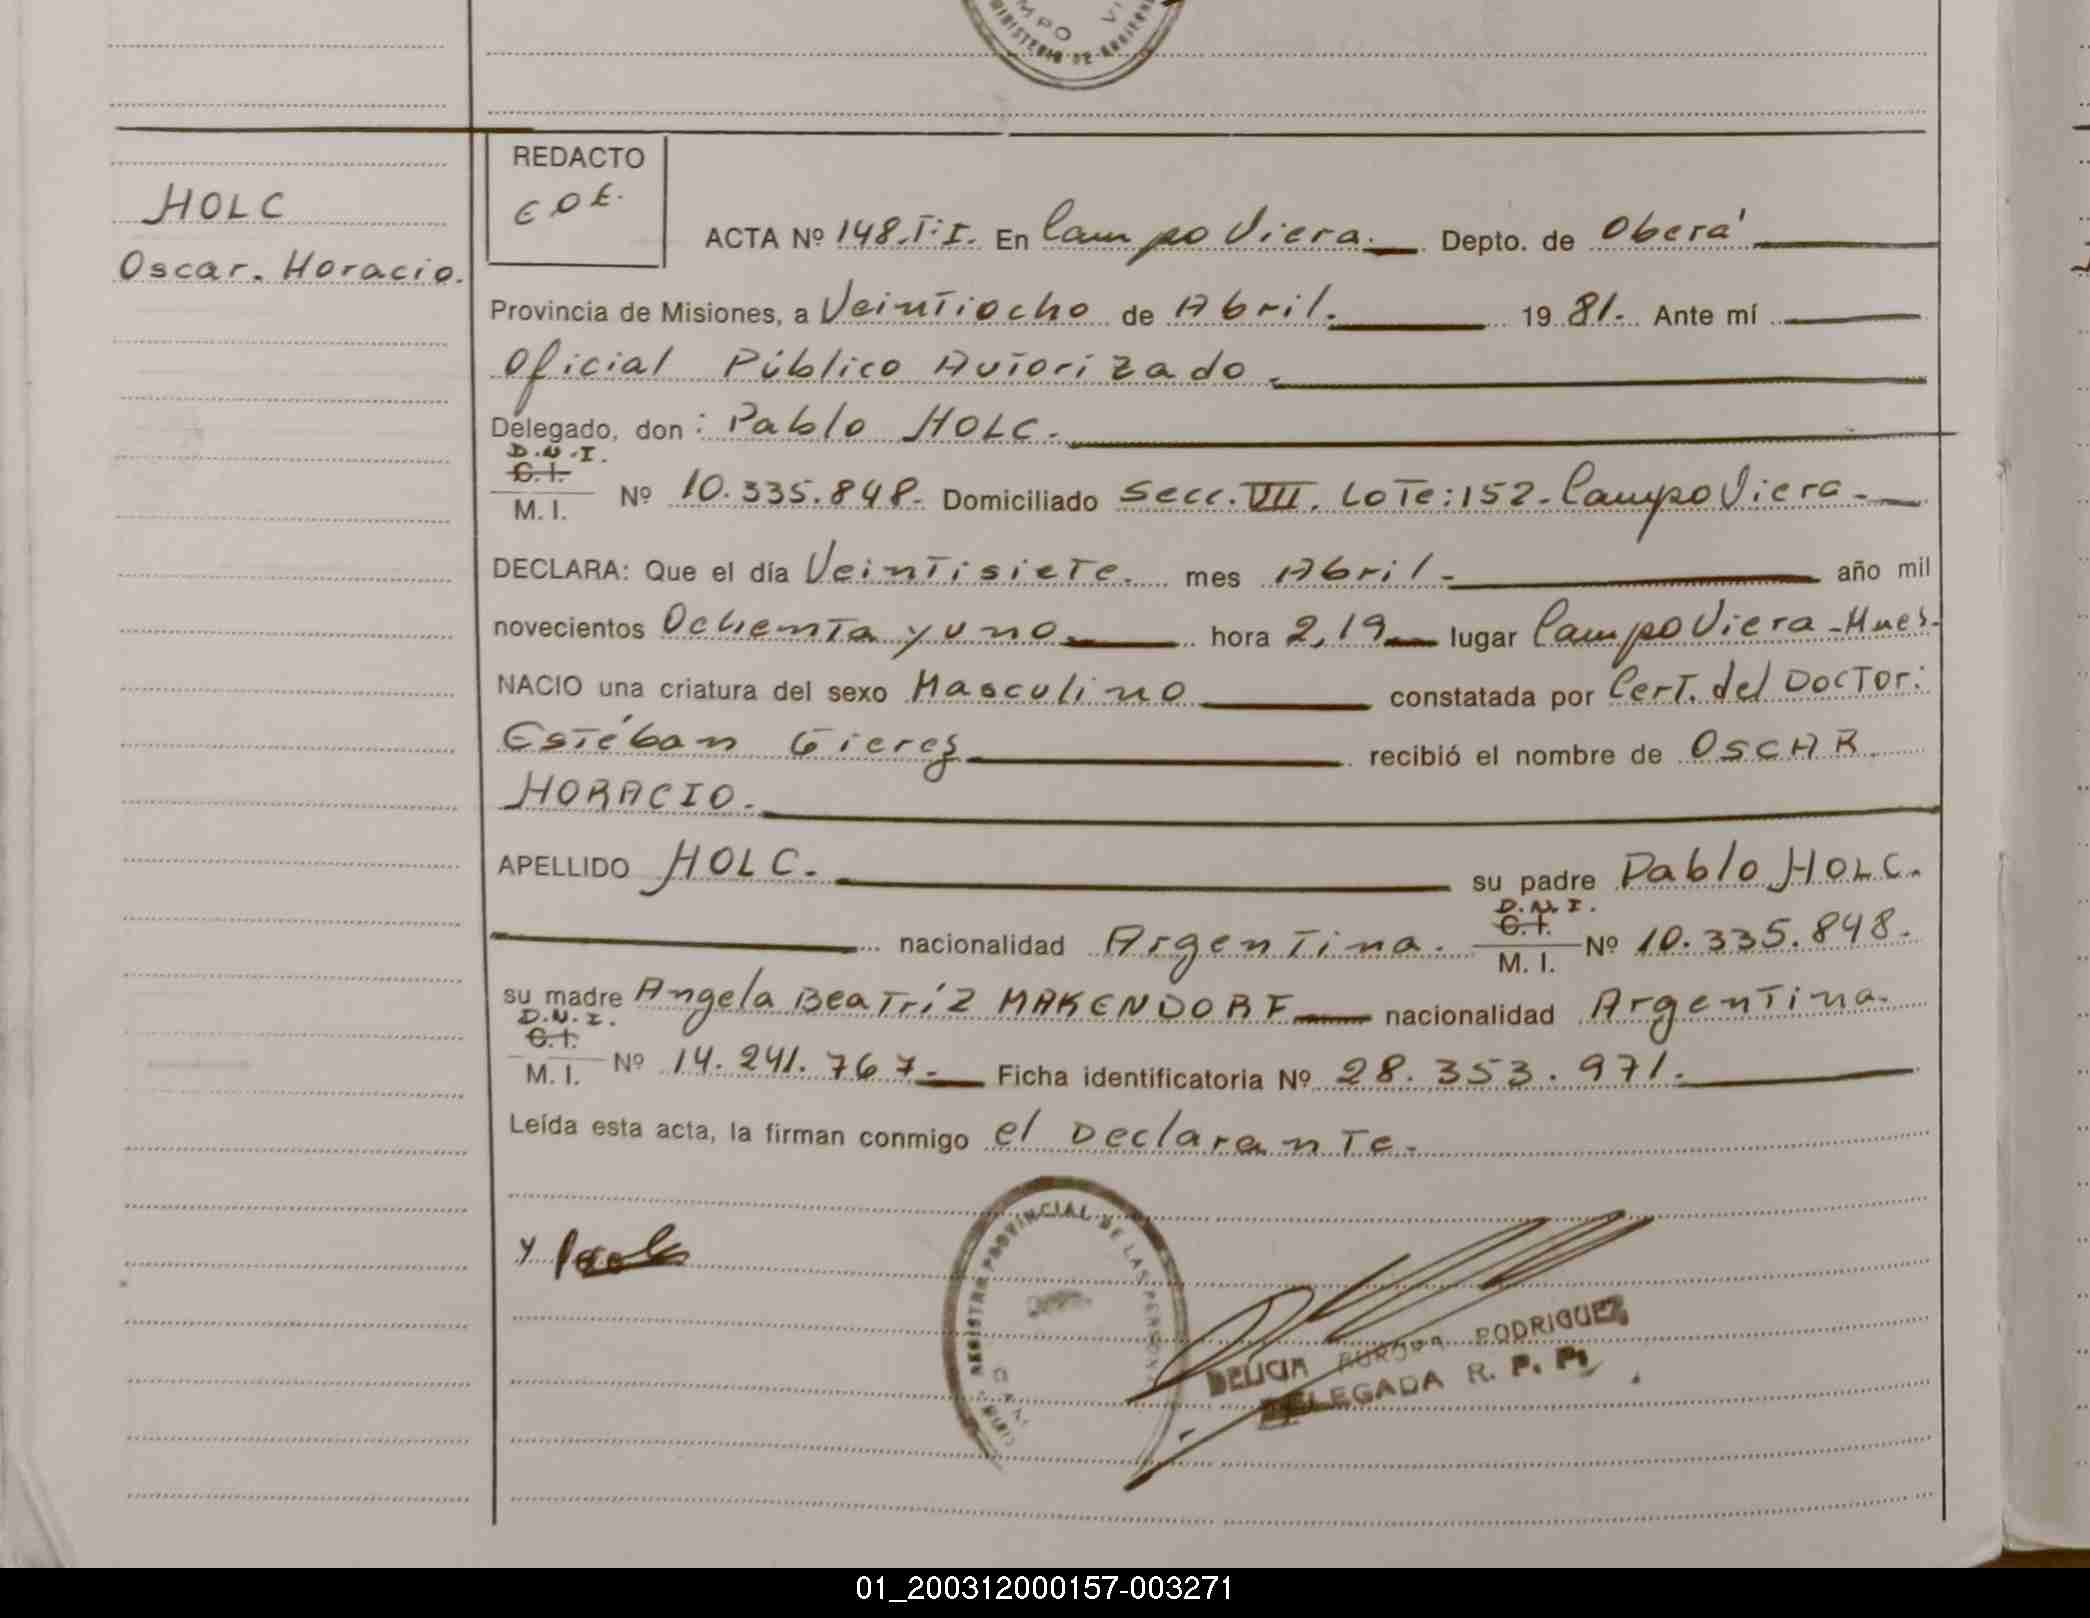 MPO VI
MINISTERIO DE
REDACTO
HOLC
Oscar. Horacio.
ACTA Nº 148.T:I. En Campo Viera. Depto. de Oberá
Provincia de Misiones, a Veintiocho de Abril. 19 81. Ante mí
Oficial Público Autorizado
Delegado, don: Pablo HOLC.
D.N.I.
C.I.
M. I. Nº 10.335.848. Domiciliado Secc. VII. Lote: 152- Campo Viera
DECLARA: Que el día Veintisiete. mes Abril. año mil
novecientos Ochenta y uno hora 2,19 lugar Campo Viera-Mnes.
NACIO una criatura del sexo Masculino constatada por Cert. del Doctor:
Estéban recibió el nombre de OSCAR
HORACIO.
APELLIDO HOLC. su padre Pablo HOLC.
D.N.I.
C.I.
nacionalidad Argentina. M. I. Nº 10.335.848.
su madre Angela Beatríz MAKENDORF nacionalidad Argentina.
D.N.I.
C.I.
M. I. Nº 14.241.767. Ficha identificatoria Nº 28.353.971.
Leída esta acta, la firman conmigo el Declarante.
REGISTRO PROVINCIAL DE LAS PERSONAS
DELICIA AURORA RODRIGUEZ
DELEGADA R. P. P.
01_200312000157-003271